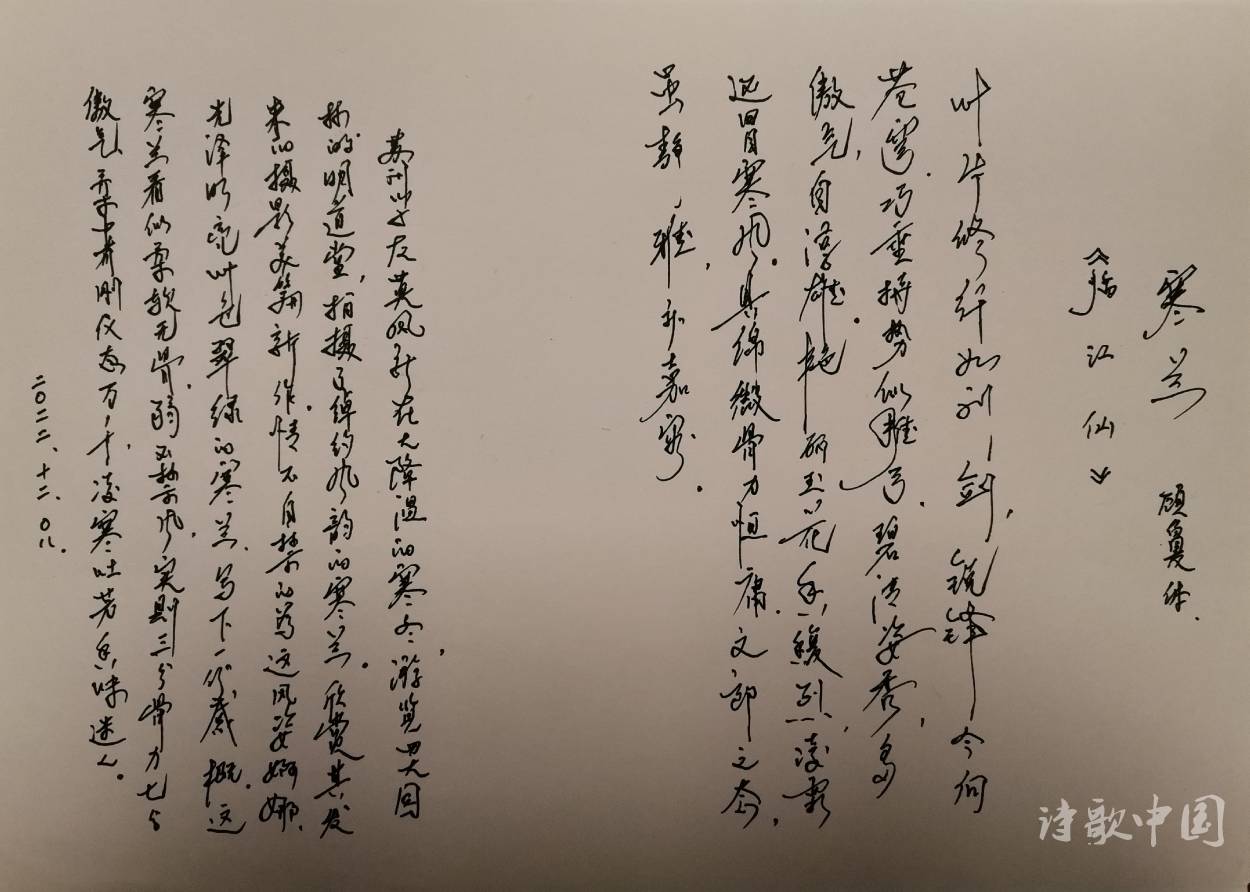 寒兰
顾夐体.
《临江仙》
叶片修纤如利剑,锐锋今何
苍穹.巧垂拼势似雕弓.碧清姿秀,多
傲气,自浮雄.艳丽玉花香馥烈,凌霜
迎冒寒风.具绵微骨力恒庸.文郎之态,
虽静,雅,和嘉容.
苏州叶友英凤新在大降温的寒冬,游览四大园
林的明道堂,拍摄了绰约风韵的寒兰.欣赏其发
来的摄影美篇新作.情不自禁的为这风姿婀娜.
光泽明亮叶色翠绿的寒兰.写下一份感概.这
寒兰看似柔软无骨.弱不禁风,实则三分骨力七分
傲气.柔中有刚仪态万千,凌寒吐芳香味迷人.
二〇二二.十二.〇八.
诗歌中国